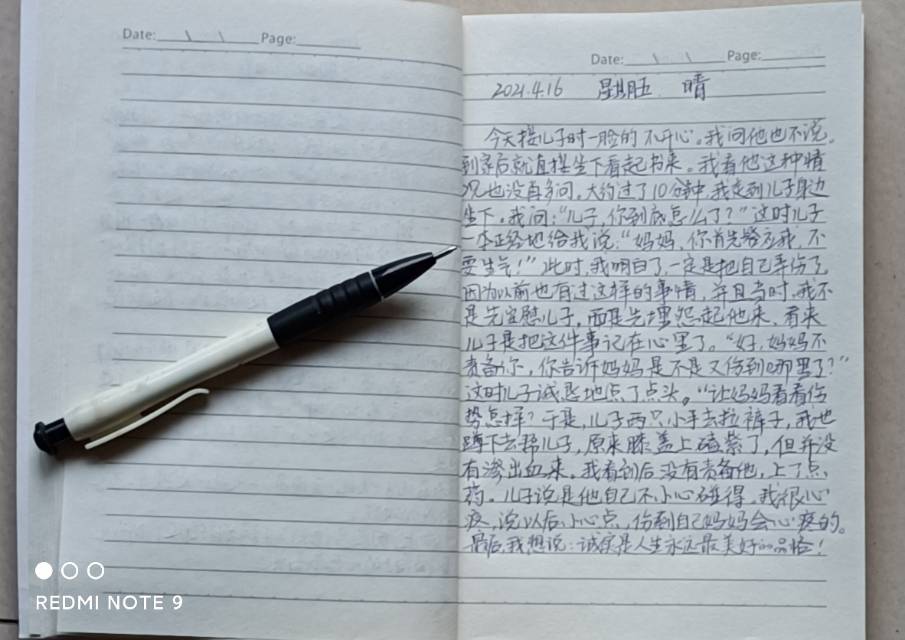 Date: \ \ Page:
Date: \ \ Page:
2021.4.16 星期五 晴
今天接儿子时一脸的不开心。我问他也不说。
到家后就直接坐下看起书来。我看他这种情
况也没再多问。大约过了10分钟,我走到儿子身边
坐下。我问:“儿子,你到底怎么了?”这时儿子
一本正经地给我说:“妈妈,你首先答应我,不
要生气!”此时,我明白了,一定是把自己弄伤了,
因为以前也有过这样的事情,并且当时,我不
是先安慰儿子,而是先埋怨起他来,看来
儿子是把这件事记在心里了。“好,妈妈不
责备你,你告诉妈妈是不是又伤到哪里了?”
这时儿子诚恳地点了点头。“让妈妈看看伤
势怎样?于是,儿子两只小手去拉裤子,我也
蹲下去帮儿子,原来膝盖上磕紫了,但并没
有渗出血来。我看到后没有责备他,上了点
药。儿子说是他自己不小心碰得。我很心
疼,说以后小心点,伤到自己妈妈会心疼的。
最后,我想说:诚实是人生永远最美好的品格!
REDMI NOTE 9